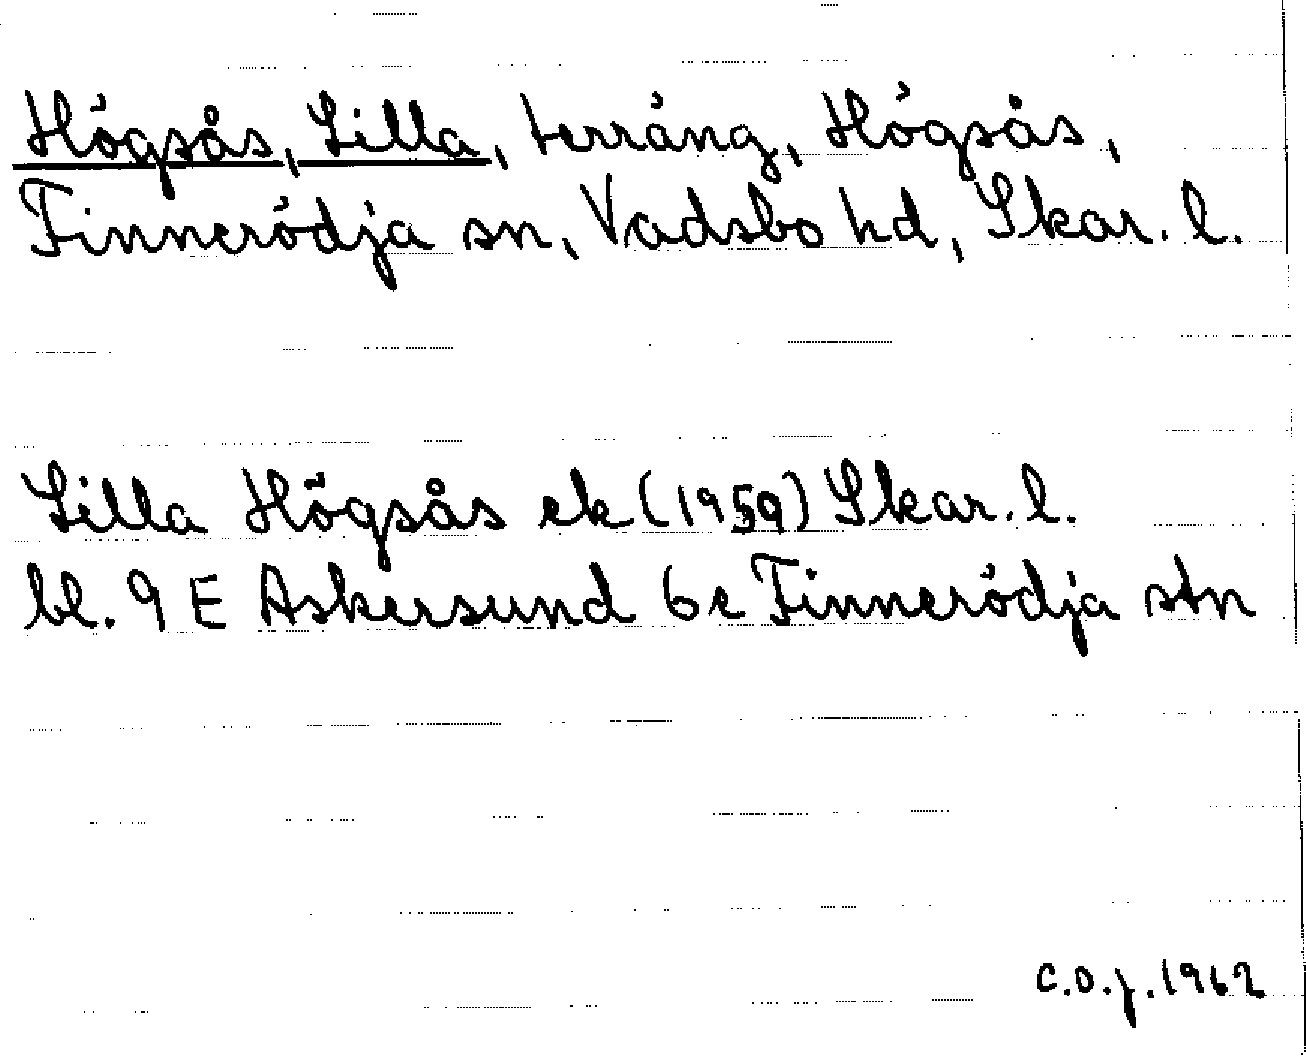 Högsås, Lilla, terräng, Högsås,
Finnerödja sn, Vadsbo hd, Skar. l.
Lilla Högsås ek (1959) Skar. l.
bl. 9 E Askersund 6e Finnerödja stn
C.O.J. 1962